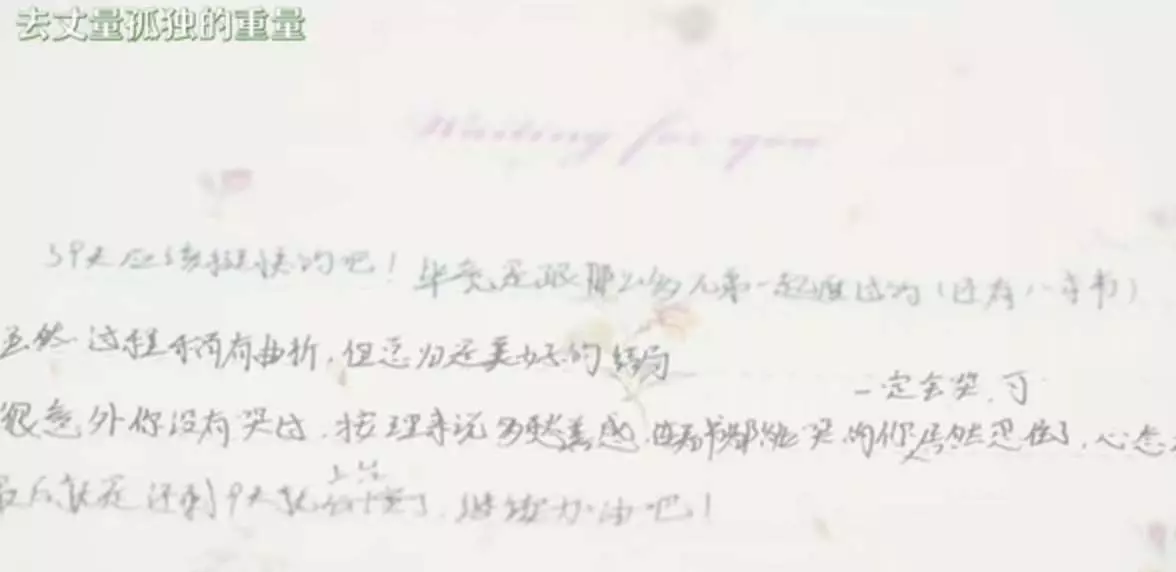 去丈量孤独的重量
Waiting for you
59天应该挺快的吧！毕竟是跟那么多兄弟一起度过的（还有八音书）
虽然过程稍有曲折，但总归是美好的结局
一定会哭，可
很意外你没有哭过，按理来说多愁善感，看书都能哭的你居然忍住了，心态
最后就是还剩9天就
了，继续加油吧！